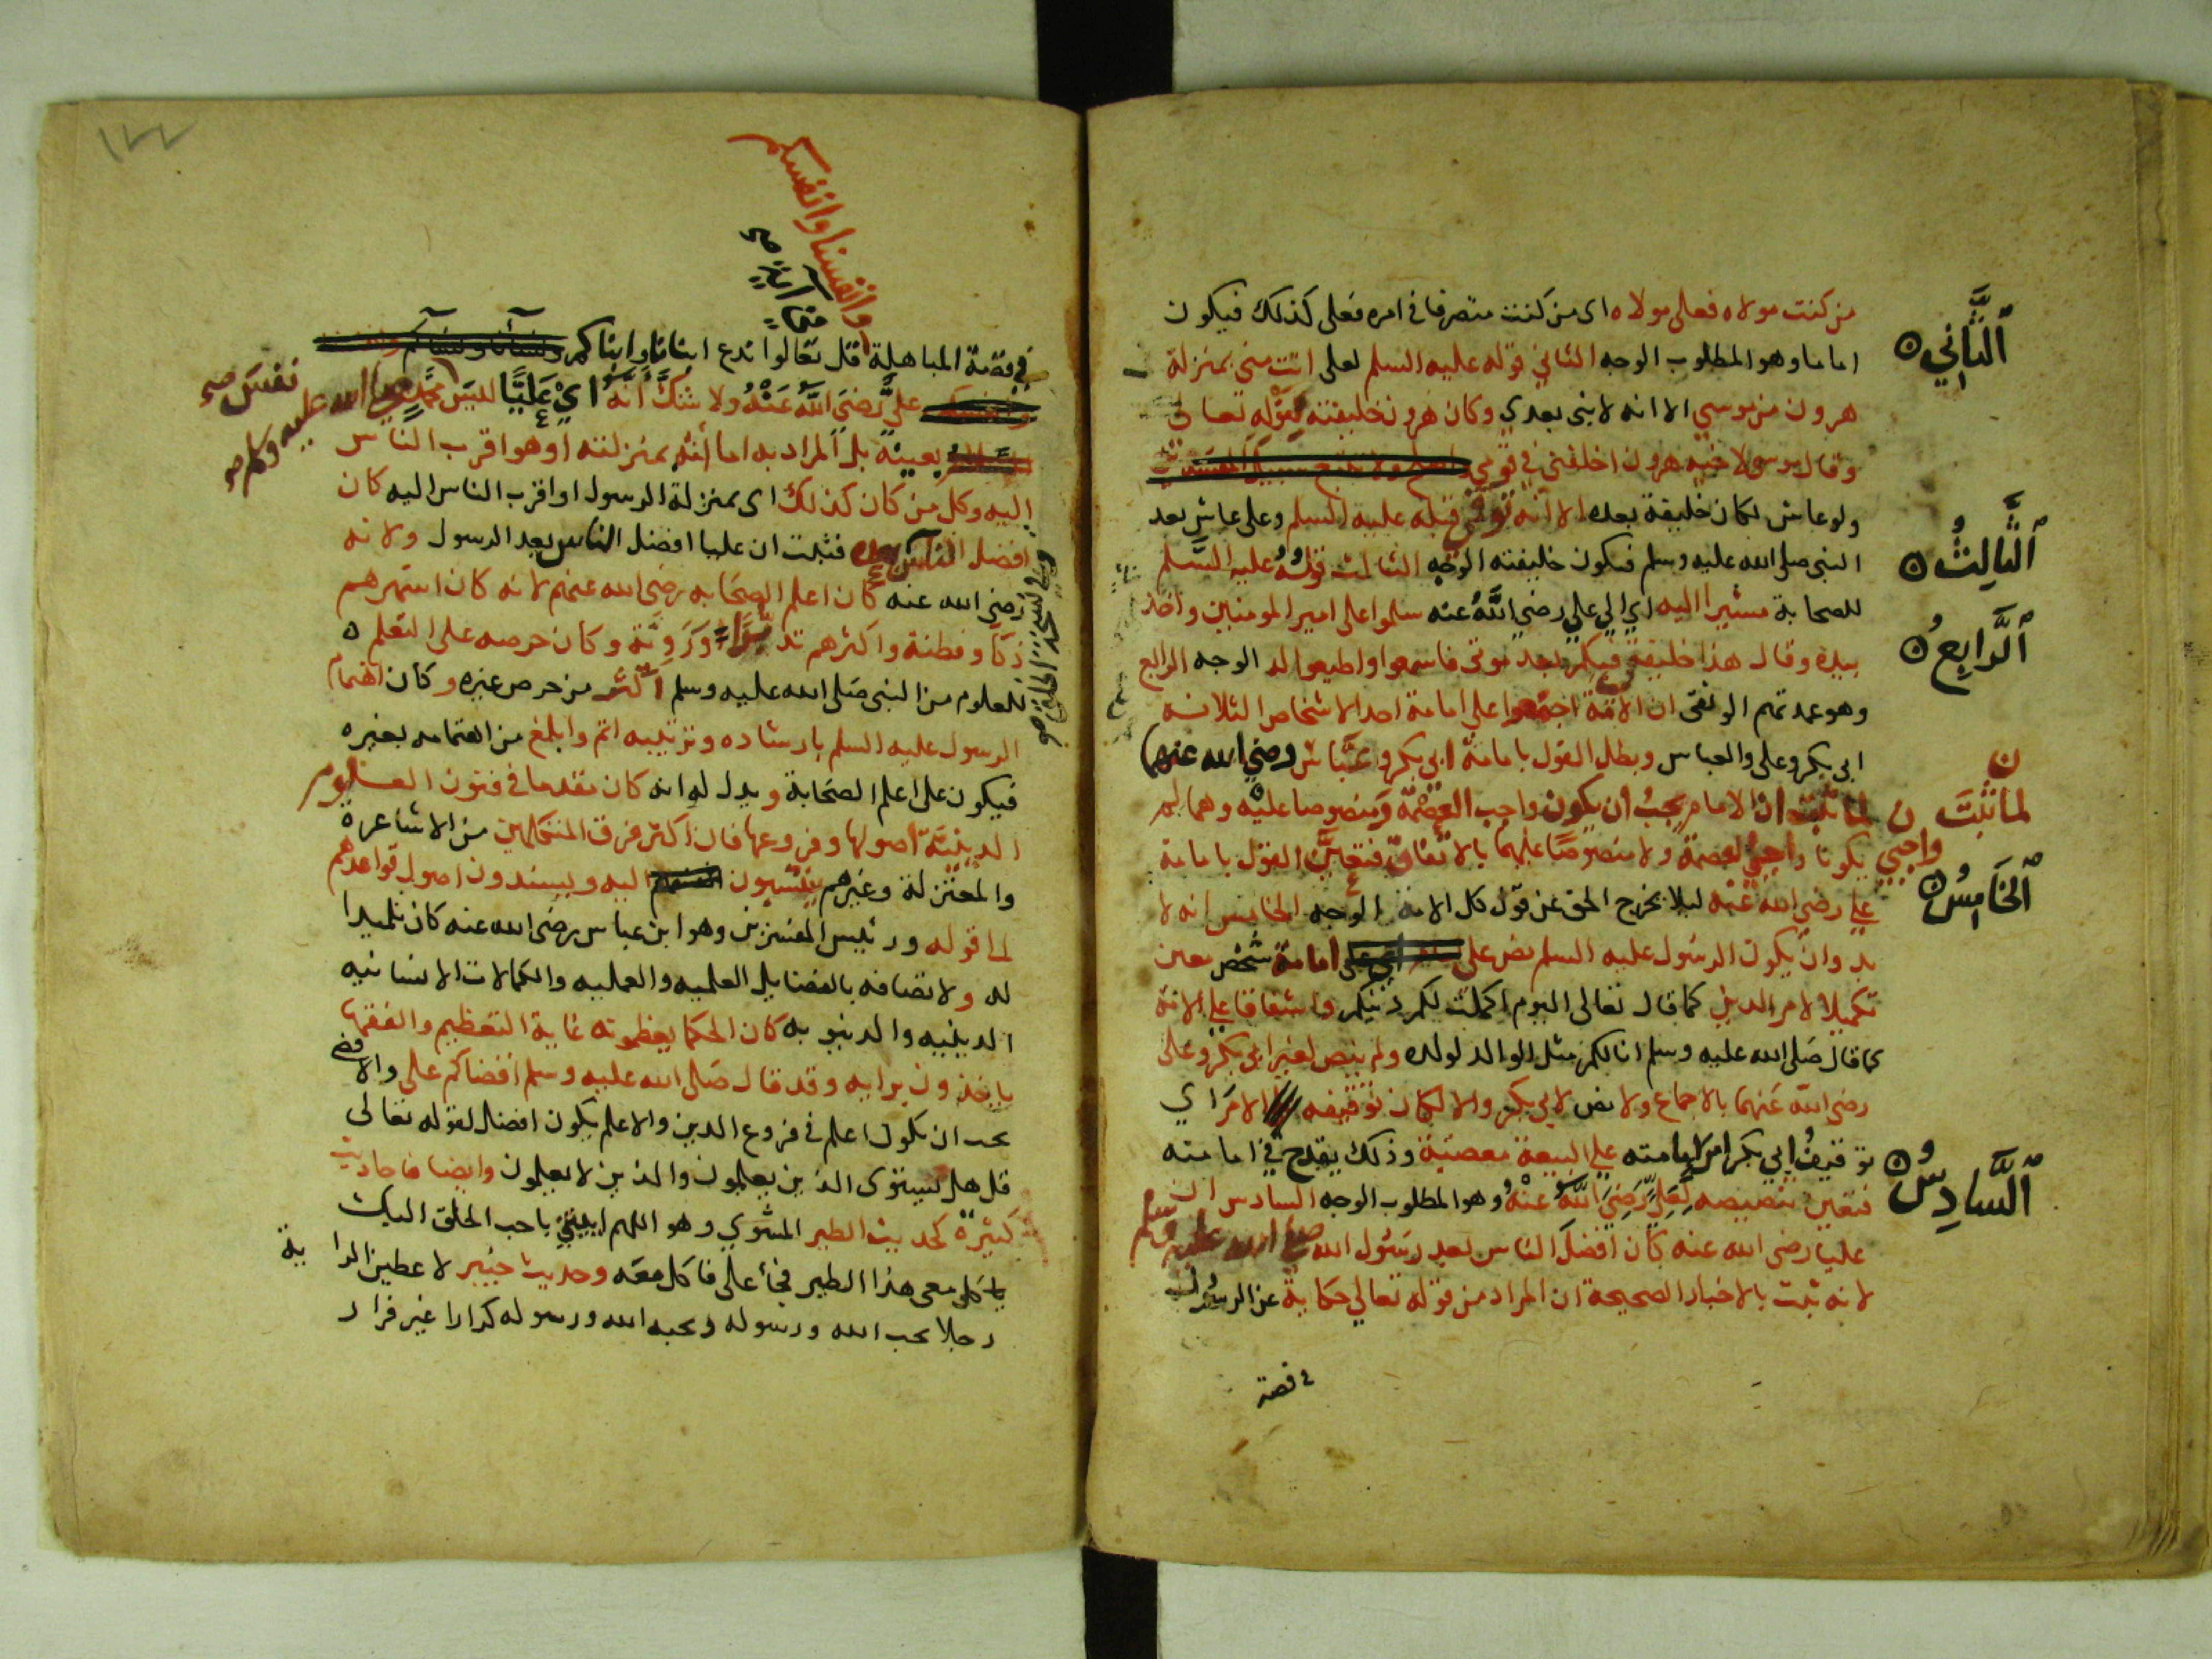 من كنت مولاه فعلى مولاه اى من كنت متصرفا فى امره فعلى كذلك فيكون
اَلثَّانِي
اماما وهو المطلوب الوجه الثانى قوله عليه السلم لعلى انت منى بمنزلة
هرون من موسى الا انه لا نبى بعدى وكان هرون خليفته لقوله تعالى
وقال موسى لاخيه هرون اخلفنى فى قومى
ولو عاش لكان خليفة بعده الا انه توفى قبله عليه السلم وعلى عاش بعد
اَلثَّالِثُ
النبى صلى الله عليه وسلم فيكون خليفته الوجه الثالث قوله عليه السلم
للصحابة مشيرا اليه اي الي علي رضي الله عنه سلموا على امير المومنين واخذ
اَلرَّابِعُ
بيده وقال هذا خليفتى فيكم بعد موتى فاسمعوا واطيعوا له الوجه الرابع
وهو عمدتهم الوثقى ان الامة اجتمعوا على امامة احد الاشخاص الثلاثة
ابى بكر وعلى والعباس وبطل القول بامامة ابى بكر وعباس رضي الله عنهما
لما ثبتَ ن
لما ثبت ان الامام يجب ان يكون واجب العصمة ومنصوصا عليه وهما لم
واجبي
يكونا واجبي العصمة ولا منصوصا عليهما بالاتفاق فتعين القول بامامة
اَلخَامِسُ
علي رضي الله عنه ليلا يخرج الحق عن قول كل الامة الوجه الخامس انه لا
بد وان يكون الرسول عليه السلم نص على امامة شخص معين
تكميلا لامر الدين كما قال تعالى اليوم اكملت لكم دينكم واشفاقا علي الامة
كما قال صلى الله عليه وسلم انا لكم مثل الوالد لولده ولم ينص لغير ابى بكر وعلى
رضي الله عنهما بالاجماع ولا نص لابى بكر والا لكان توقيفه الامر اي
توقيف ابي بكر امر امامته علي البيعة معصية وذلك يقدح في امامته
اَلسَّادِسُ
فتعين تنصيصه لعلي رضي الله عنه وهو المطلوب الوجه السادس ان
عليا رضي الله عنه كان افضل الناس بعد رسول الله صلى الله عليه وسلم
لانه ثبت بالاخبار الصحيحة ان المراد من قوله تعالي حكاية عن الرسول
فى قصة
١٢٢
وانفسنا وانفسكم
فى قصة المباهلة قل تعالوا ندع ابنانا وابناكم ونسآنا ونسآكم
علي رضي الله عنه ولا شك انه اي عليا ليس محمد صلى الله عليه وسلم
نفس صح
بعينه بل المراد به اما انه بمنزلته او هو اقرب الناس
اليه وكل من كان كذلك اى بمنزلة الرسول او اقرب الناس اليه كان
افضل الناس بعده فثبت ان عليا افضل الناس بعد الرسول ولانه
رضى الله عنه كان اعلم الصحابه رضى الله عنهم لانه كان اشهرهم
ذكا وفطنة واكثرهم تدبيرا وروية وكان حرصه على التعلم
للعلوم من النبى صلى الله عليه وسلم اكثر من حرص غيره وكان اهتمام
الرسول عليه السلم بارشاده وتربيته اتم وابلغ من اهتمامه بغيره
فيكون على اعلم الصحابة ويدل له انه كان مقدما فى فنون العلوم
الدينية اصولها وفروعها فان اكثر فرق المتكلمين من الاشاعرة
والمعتزلة وغيرهم ينسبون اليه ويسندون اصول قواعدهم
لما قوله ورئيس المفسرين وهو ابن عباس رضى الله عنه كان تلميذا
له ولاتصافه بالفضايل العلميه والعمليه والكمالات الانسانيه
الدينيه والدنيويه كان الحكما يعظمونه غاية التعظيم والفقها
ياخذون برايه وقد قال صلى الله عليه وسلم اقضاكم على والاقضى
يجب ان يكون اعلم فى فروع الدين والاعلم يكون افضل لقوله تعالى
قل هل يستوى الذين يعلمون والذين لا يعلمون وايضا فاحاديث
كثيرة كحديث الطير المشوي وهو اللهم ايتني باحب الخلق اليك
ياكل معى هذا الطير فجأ على فاكل معه وحديث خيبر لاعطين الراية
رجلا يحب الله ورسوله ويحبه الله ورسوله كرارا غير فرار